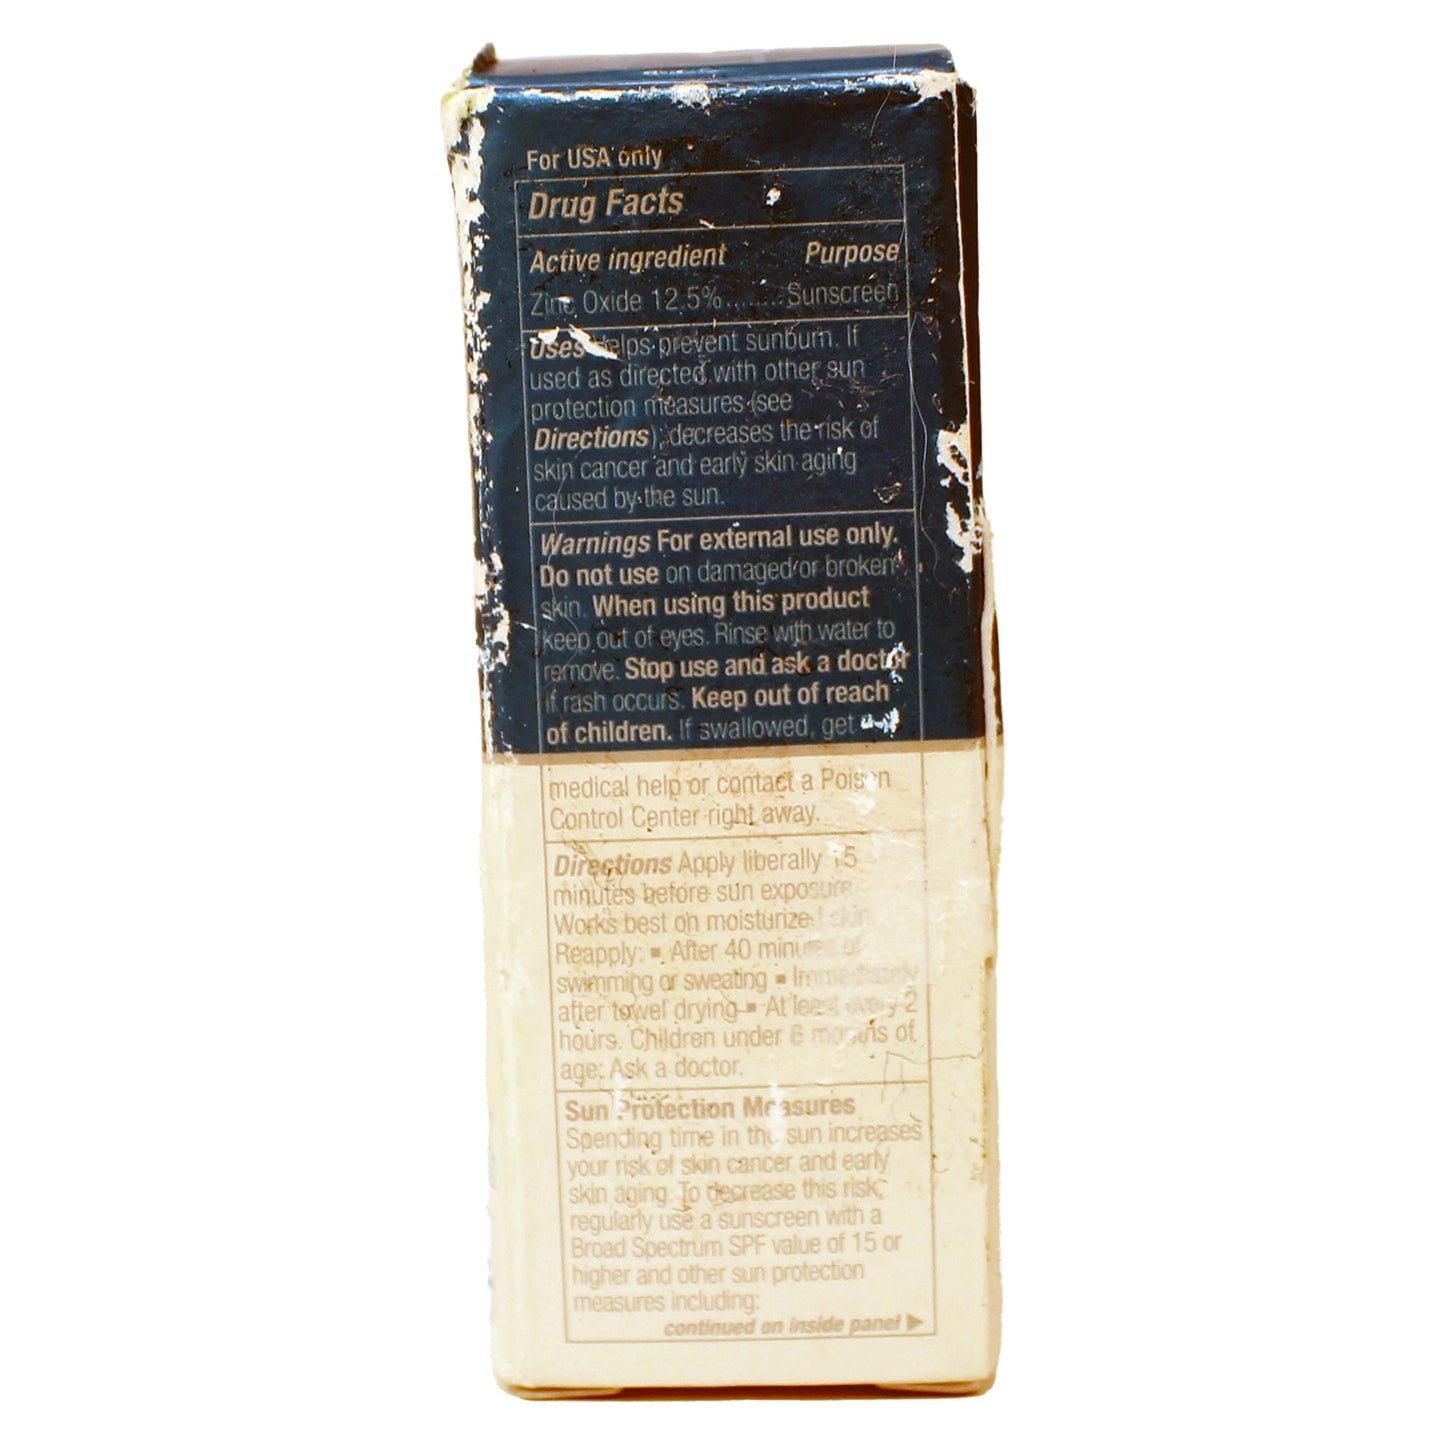 For USA only
Drug Facts
Active ingredient Purpose
Zinc Oxide 12.5%........Sunscreen
Uses Helps prevent sunburn. If
used as directed with other sun
protection measures (see
Directions), decreases the risk of
skin cancer and early skin aging
caused by the sun.
Warnings For external use only.
Do not use on damaged or broken
skin. When using this product
keep out of eyes. Rinse with water to
remove. Stop use and ask a doctor
if rash occurs. Keep out of reach
of children. If swallowed, get
medical help or contact a Poison
Control Center right away.
Directions Apply liberally 15
minutes before sun exposure.
Works best on moisturized skin.
Reapply: ▪ After 40 minutes of
swimming or sweating ▪ Immediately
after towel drying ▪ At least every 2
hours. Children under 6 months of
age: Ask a doctor.
Sun Protection Measures
Spending time in the sun increases
your risk of skin cancer and early
skin aging. To decrease this risk,
regularly use a sunscreen with a
Broad Spectrum SPF value of 15 or
higher and other sun protection
measures including:
continued on inside panel ▶